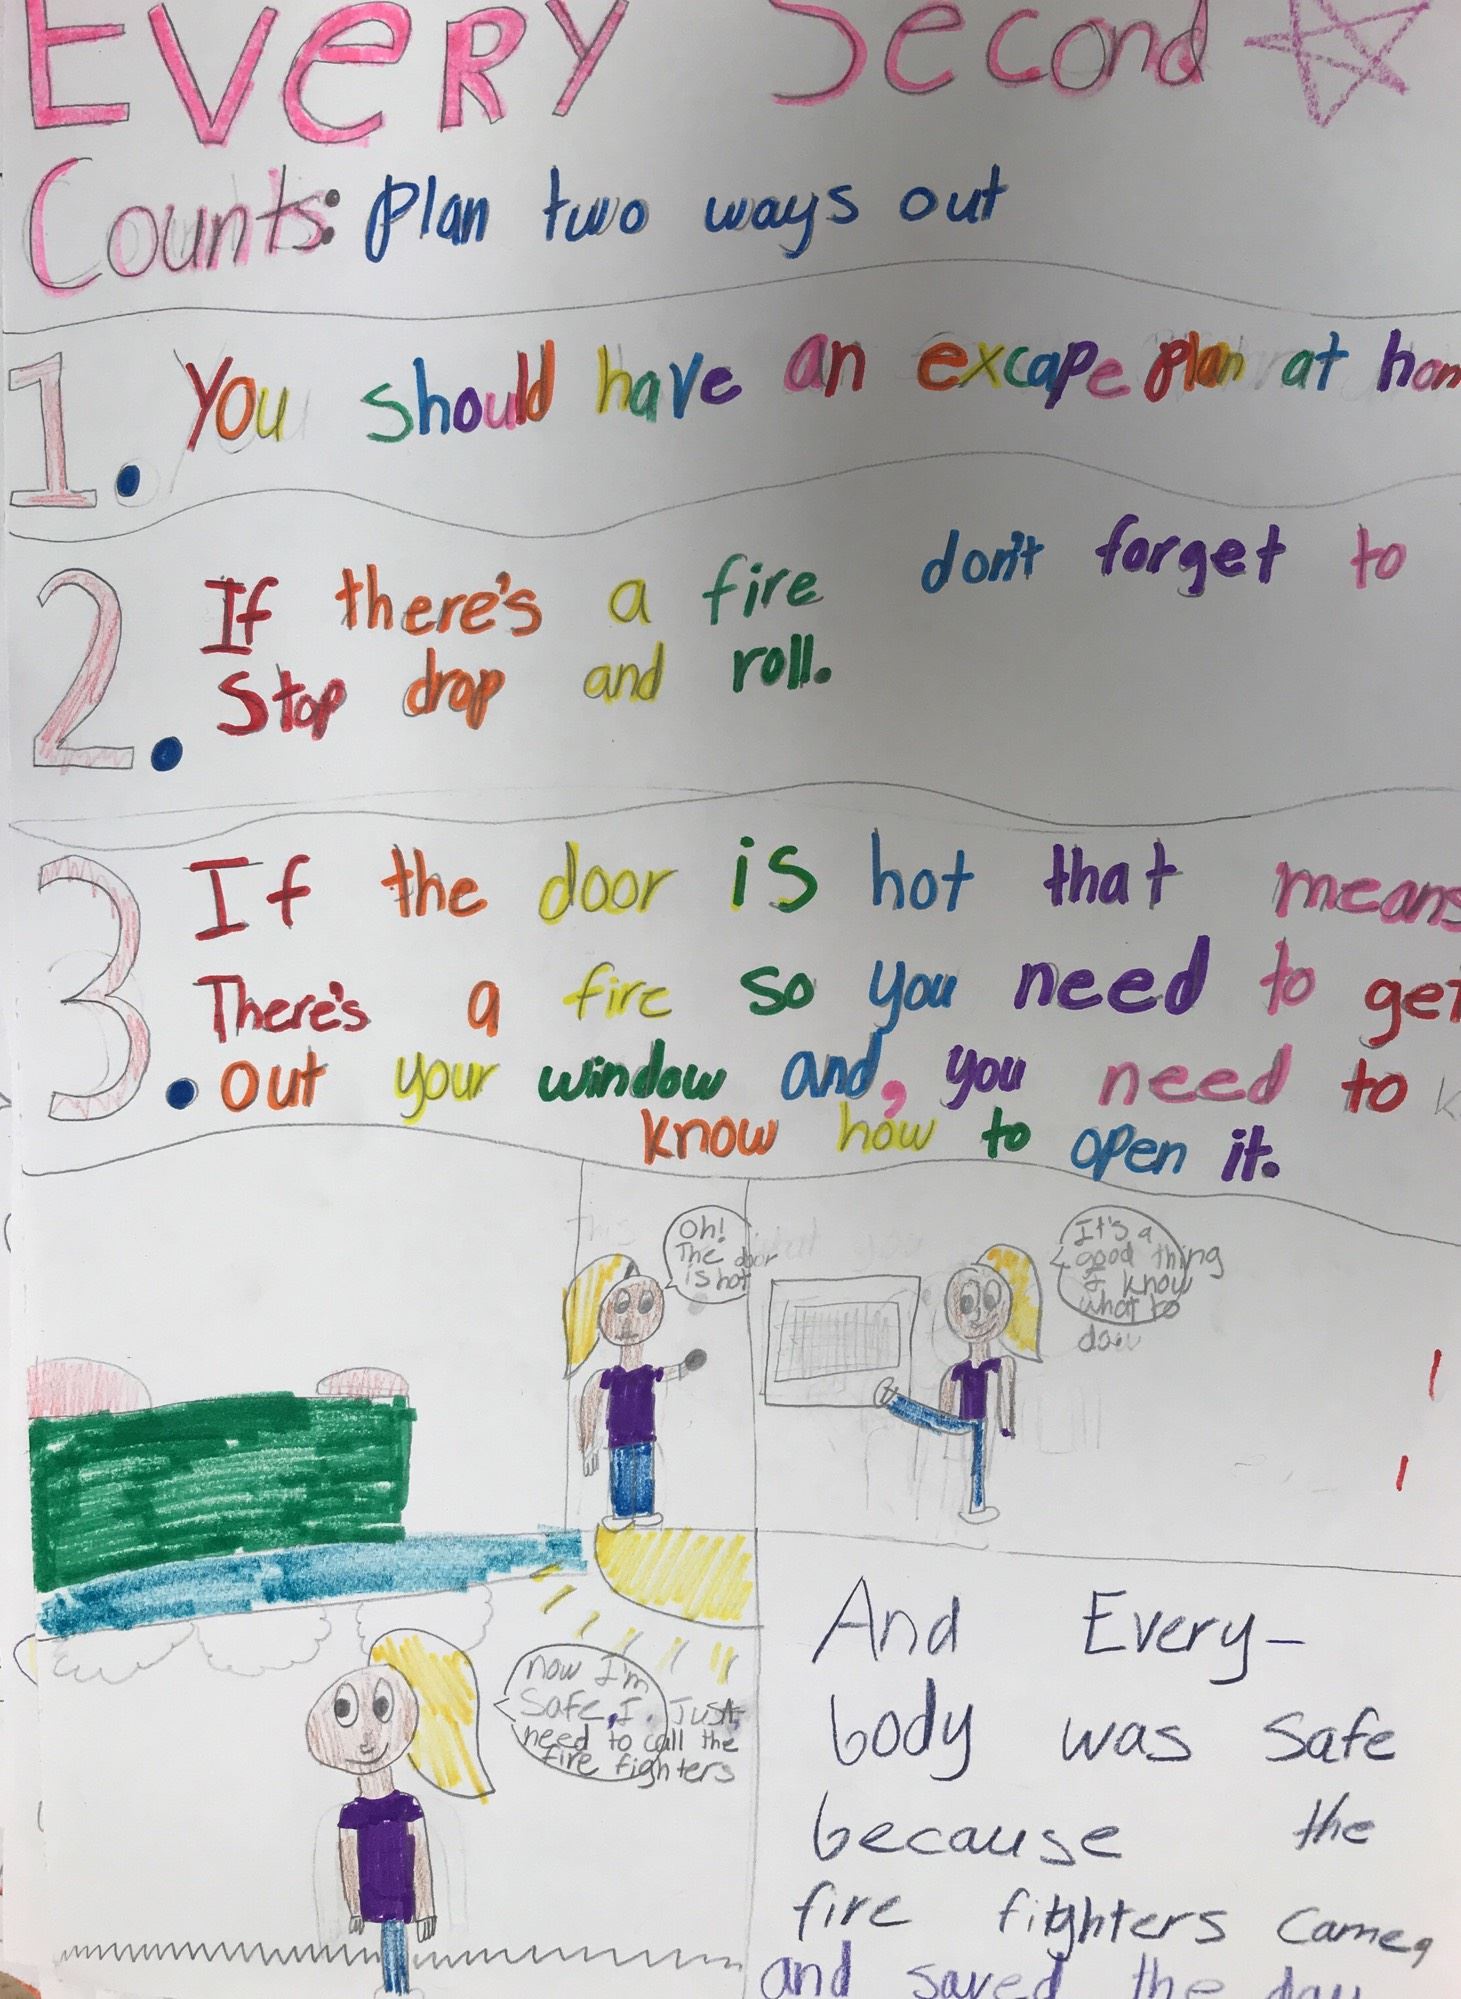 EVERY Second
Counts: Plan two ways out
1. You should have an excape plan at hom
2. If there's a fire don't forget to
Stop drop and roll.
3. If the door is hot that means
There's a fire so you need to get
out your window and, you need to k
know how to open it.
Oh!
The door
is hot
It's a
good thing
I know
what to
do
now I'm
Safe, I. Just
need to call the
fire fighters
And Every-
body was Safe
because the
fire fitghters came,
and saved the day